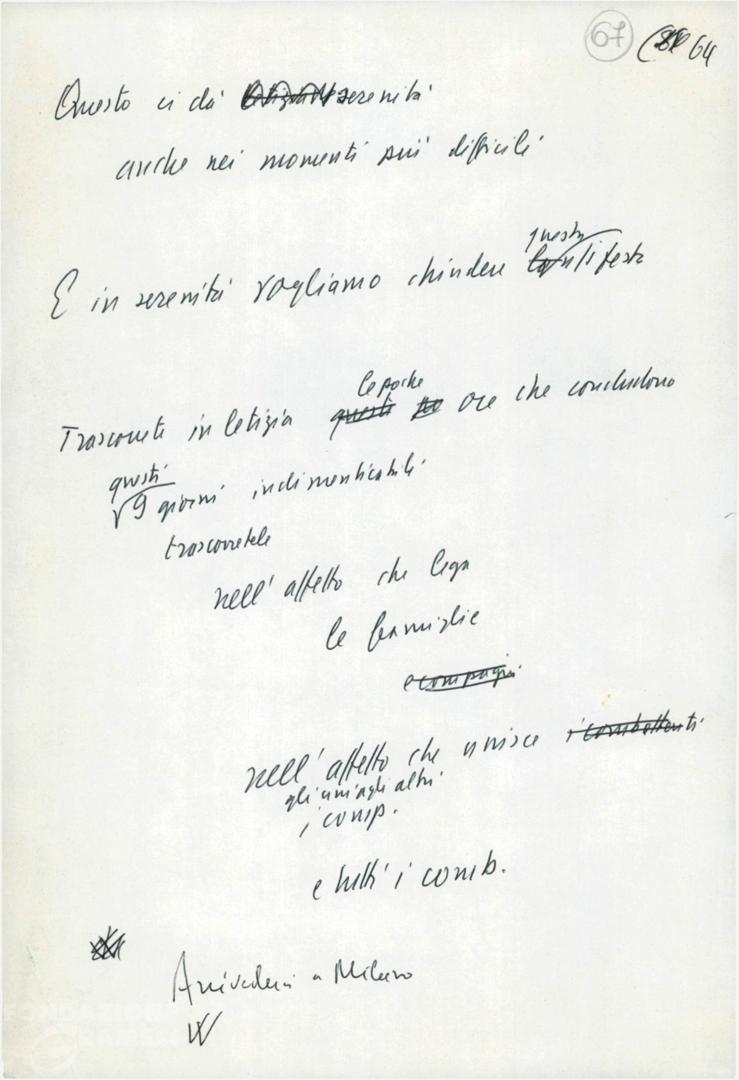 67 64
Questo ci dà serenità
anche nei momenti più difficili
questa
E in serenità vogliamo chiudere festa
le poche
Trascorrete in letizia queste po ore che concludono
questi
9 giorni indimenticabili
trascorretele
nell'affetto che lega
le famiglie
e compagni
nell'affetto che unisce i combattenti
gli uni agli altri
i comp.
e tutti i comb.
Arrivederci a Milano
W
FONDAZIONE